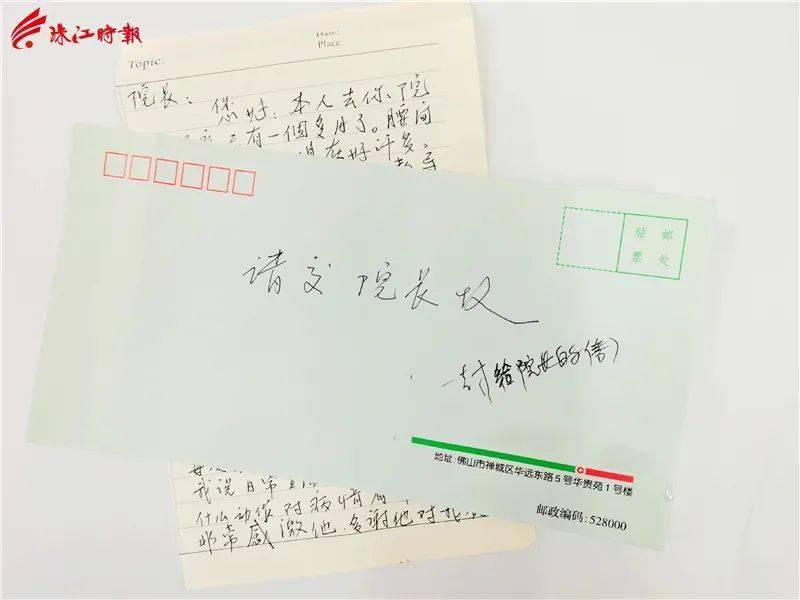 珠江時報
Date:
Place:
Topic:
院长：您好：本人去你院
有一個多月了。腰间
在好许多。
贴 邮
票 处
请交院长收
一封给院长的信）
地址:佛山市禅城区华远东路5号华贵苑1号楼
邮政编码:528000
我说日常生
什么动作对病情有
非常感激他,多谢他对